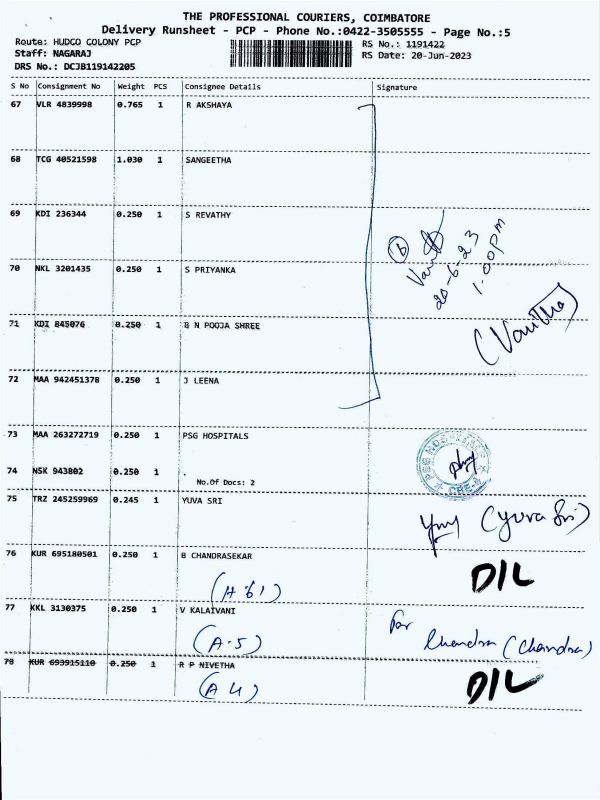 THE PROFESSIONAL COURIERS, COIMBATORE
Delivery Runsheet - PCP - Phone No.:0422-3505555 - Page No.:5
Route: HUDCO COLONY PCP
RS No.: 1191422
Staff: NAGARAJ
RS Date: 20-Jun-2023
DRS No.: DCJB119142205
S No Consignment No Weight PCS Consignee Details Signature
67 VLR 4839998 0.765 1 R AKSHAYA
68 TCG 40521598 1.030 1 SANGEETHA
69 KDI 236344 0.250 1 S REVATHY
20-6-23
1.00pm
70 NKL 3201435 0.250 1 S PRIYANKA
(Vanitha)
71 KDI 845076 0.250 1 B N POOJA SHREE
72 MAA 942451378 0.250 1 J LEENA
73 MAA 263272719 0.250 1 PSG HOSPITALS
PSG HOSPITALS
74 NSK 943802 0.250 1 .
No.Of Docs: 2
75 TRZ 245259969 0.245 1 YUVA SRI
(Yuva Sri)
76 KUR 695180501 0.250 1 B CHANDRASEKAR
(A 61)
D/L
77 KKL 3130375 0.250 1 V KALAIVANI
(A-5)
for
Chandra (Chandra)
78 KUR 693915110 0.250 1 R P NIVETHA
(A 4)
D/L